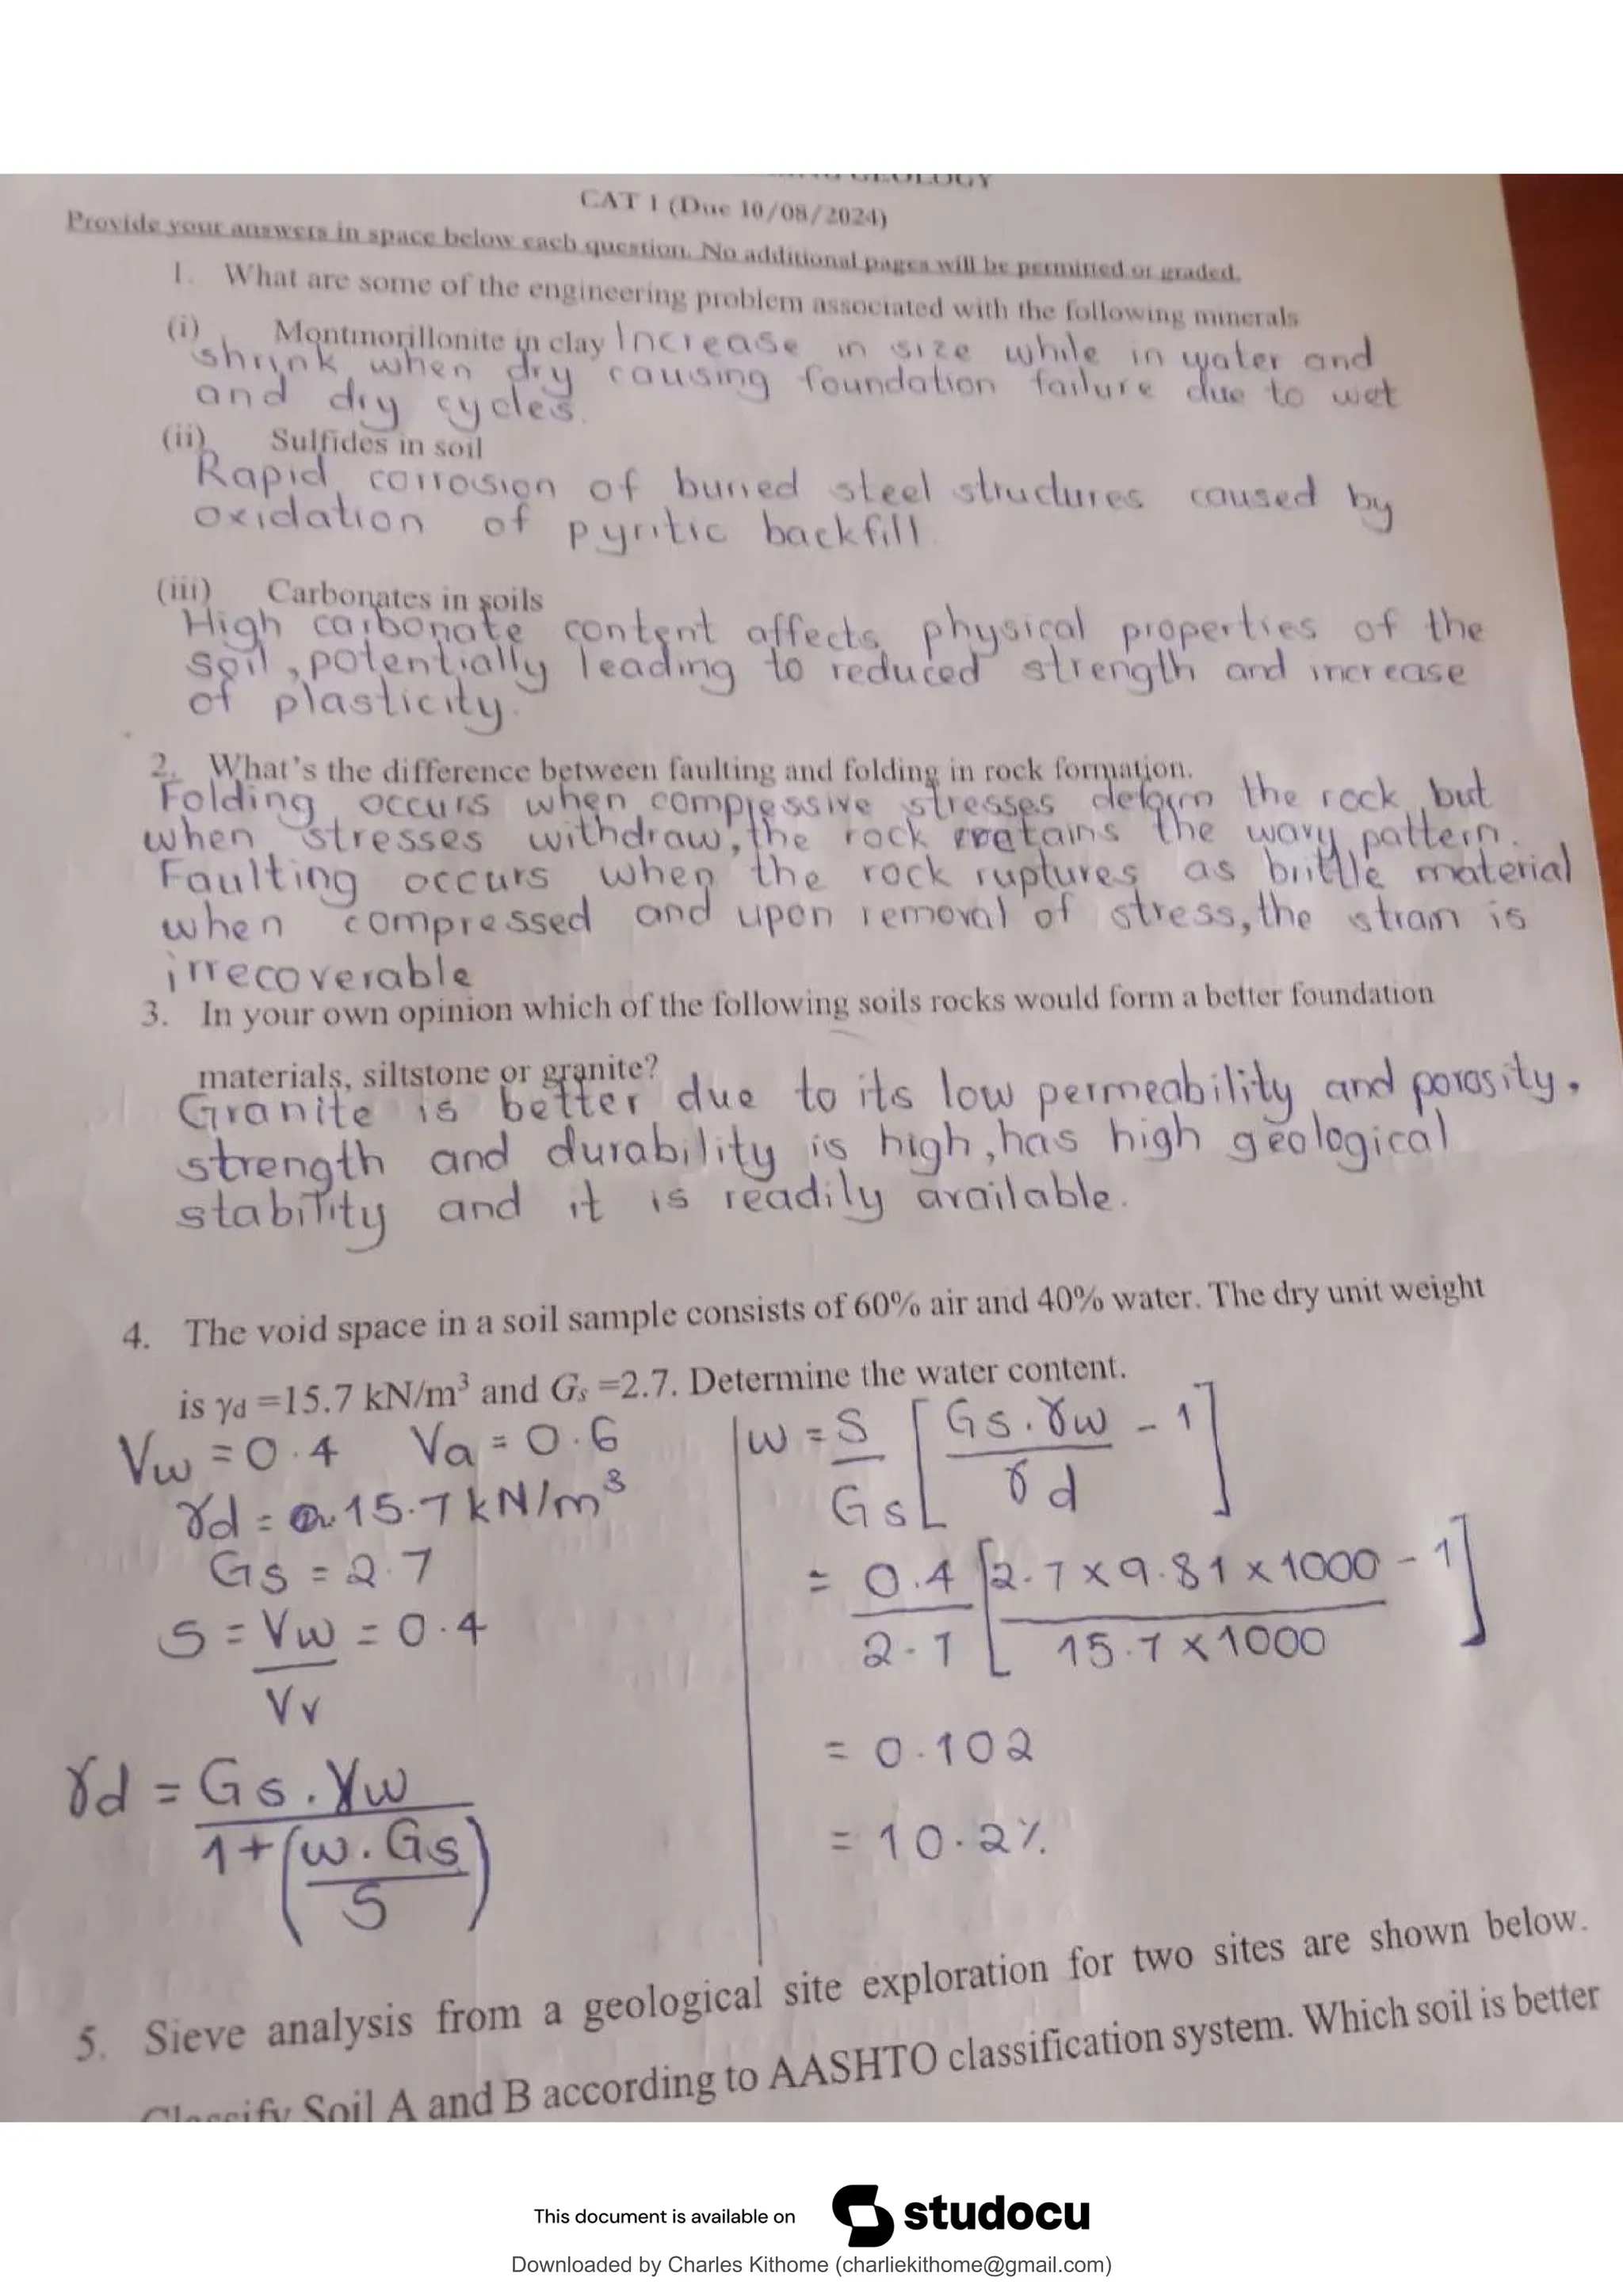 GEOLOGY
CAT 1 (Due 10/08/2024)
Provide your answers in space below each question. No additional pages will be permitted or graded.
1. What are some of the engineering problem associated with the following minerals
(i) Montmorillonite in clay Increase in size while in water and
shrink when dry causing foundation failure due to wet
and dry cycles.
(ii) Sulfides in soil
Rapid corrosion of buried steel structures caused by
oxidation of pyritic backfill.
(iii) Carbonates in soils
High carbonate content affects physical properties of the
soil, potentially leading to reduced strength and increase
of plasticity.
2. What's the difference between faulting and folding in rock formation.
Folding occurs when compressive stresses deform the rock but
when stresses withdraw, the rock retains the wavy pattern.
Faulting occurs when the rock ruptures as brittle material
when compressed and upon removal of stress, the strain is
irrecoverable
3. In your own opinion which of the following soils rocks would form a better foundation
materials, siltstone or granite?
Granite is better due to its low permeability and porosity,
strength and durability is high, has high geological
stability and it is readily available.
4. The void space in a soil sample consists of 60% air and 40% water. The dry unit weight
is γd =15.7 kN/m³ and Gs =2.7. Determine the water content.
Vw = 0.4 Va = 0.6
γd = 15.7 kN/m³
Gs = 2.7
S = Vw/Vv = 0.4
γd = Gs.γw / 1+(w.Gs/S)
w = S/Gs [Gs.γw/γd - 1]
= 0.4/2.7 [2.7 x 9.81 x 1000 / 15.7 x 1000 - 1]
= 0.102
= 10.2%
5. Sieve analysis from a geological site exploration for two sites are shown below.
Classify Soil A and B according to AASHTO classification system. Which soil is better
This document is available on studocu
Downloaded by Charles Kithome (charliekithome@gmail.com)